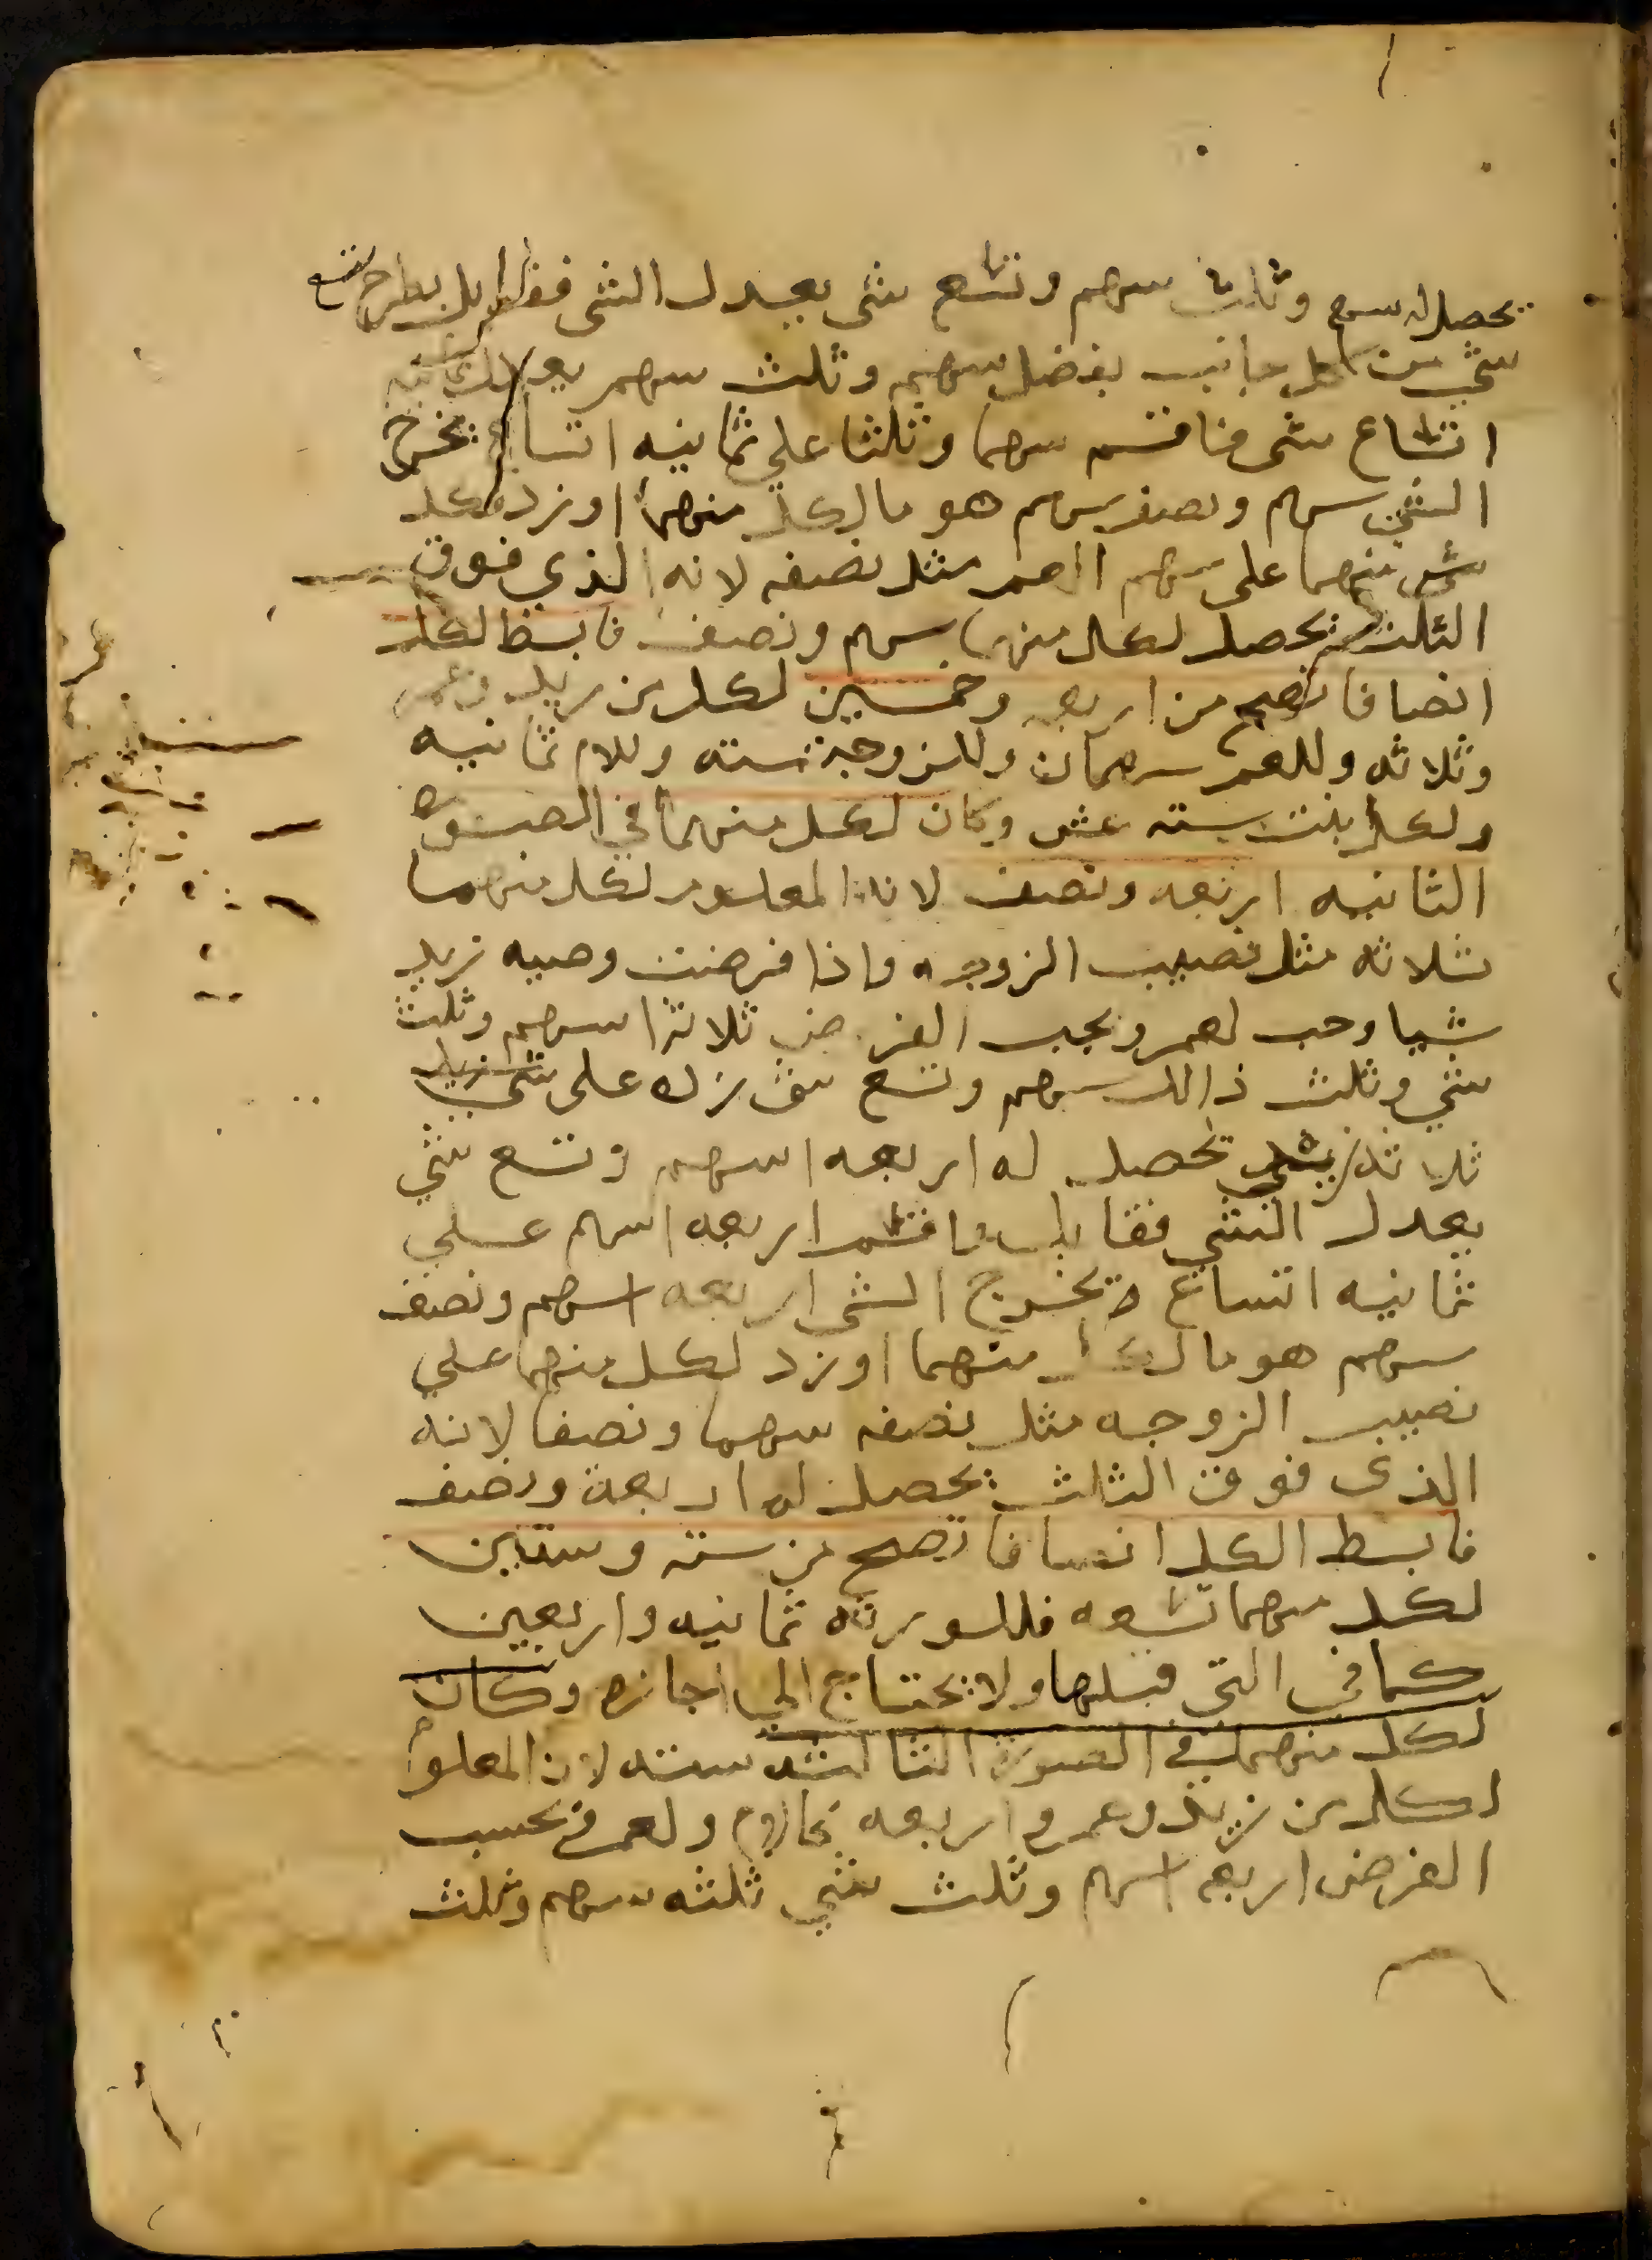 يحصل له سهم وثلث سهم وتسع شي يعدل الشي فقابل بطرح تسع
شي من كل جانب يفضل سهم وثلث سهم يعدل ثمانيه
اتساع شي فاقسم سهما وثلثا علي ثمانيه اتساع يخرج
الشي سهم ونصف سهم هو ما لكل منهما او زد لكل
منهما على سهم العم مثل نصفه لانه الذي فوق
الثلث يحصل لكل منهما سهم ونصف فابسط الكل
انصافا تصح من اربعه وخمسين لكل من زيد وعمرو
وثلاثه وللعم سهمان وللزوجة سته وللام ثمانيه
ولكل بنت سته عشر وكان لكل منهما في الصوره
الثانيه اربعه ونصف لان المعلوم لكل منهما
ثلاثه مثل نصيب الزوجه فاذا فرضت وصيه زيد
شيا وجب لعمرو بحسب الفرض ثلاثة اسهم وثلث
شي وثلث ذالك سهم وتسع شي زده على
ثلاثة زيد يحصل له اربعه اسهم وتسع شي
يعدل الشي فقابل فاقسم اربعه اسهم علي
ثمانيه اتساع يخرج الشي اربعه اسهم ونصف
سهم هو ما لكل منهما او زد لكل منهما علي
نصيب الزوجه مثل نصفه سهما ونصفا لانه
الذي فوق الثلث يحصل له اربعة ونصف
فابسط الكل انصافا تصح من سته وستين
لكل منهما تسعه فللورثه ثمانيه واربعين
كما في التي قبلها ولا يحتاج الي اجازه وكان
لكل منهما في الصورة الثالثه سته لان المعلوم
لكل من زيد وعمرو اربعه كالام ولعمرو بحسب
الفرض اربعه اسهم وثلث شي ثلثه سهم وثلث